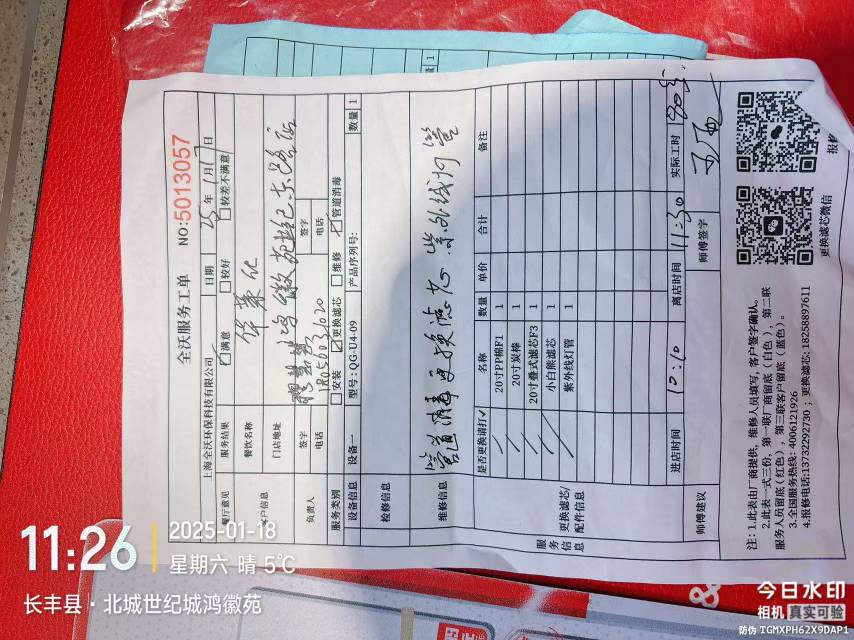 全沃服务工单
NO:5013057
上海全沃环保科技有限公司 日期 25年1月17日
餐厅意见 服务结果 满意 较好 较差不满意
客户信息 餐饮名称 华莱仕
门店地址
负责人 签字 签字
电话 18050031020 电话
服务类别 安装 更换滤芯 维修 管道消毒
设备信息 设备一 型号:QG-U4-09 产品序列号: 数量 1
检修信息
维修信息 管道消毒更换滤芯.紫外线灯管
服务信息 更换滤芯/配件信息
是否更换请打✓ 名称 数量 单价 合计 备注
20寸PP棉F1 1
20寸炭棒 1
20寸叠式滤芯F3 1
小白熊滤芯 1
紫外线灯管 1
进店时间 10:10 离店时间 11:30 实际工时
师傅建议 师傅签字
注:1.此表由厂商提供,维修人员填写,客户签字确认。
2.此表一式三份,第一联厂商留底(白色),第二联
服务人员留底(红色),第三联客户留底(蓝色)。
3.全国服务热线:4006121926
4.报修电话:13732292730;更换滤芯:18258897611
更换滤芯微信
报修
数量 1
11:26
2025-01-18
星期六 晴 5℃
长丰县·北城世纪城鸿徽苑
今日水印
相机 真实可验
防伪 TGMXPH62X9DAP1